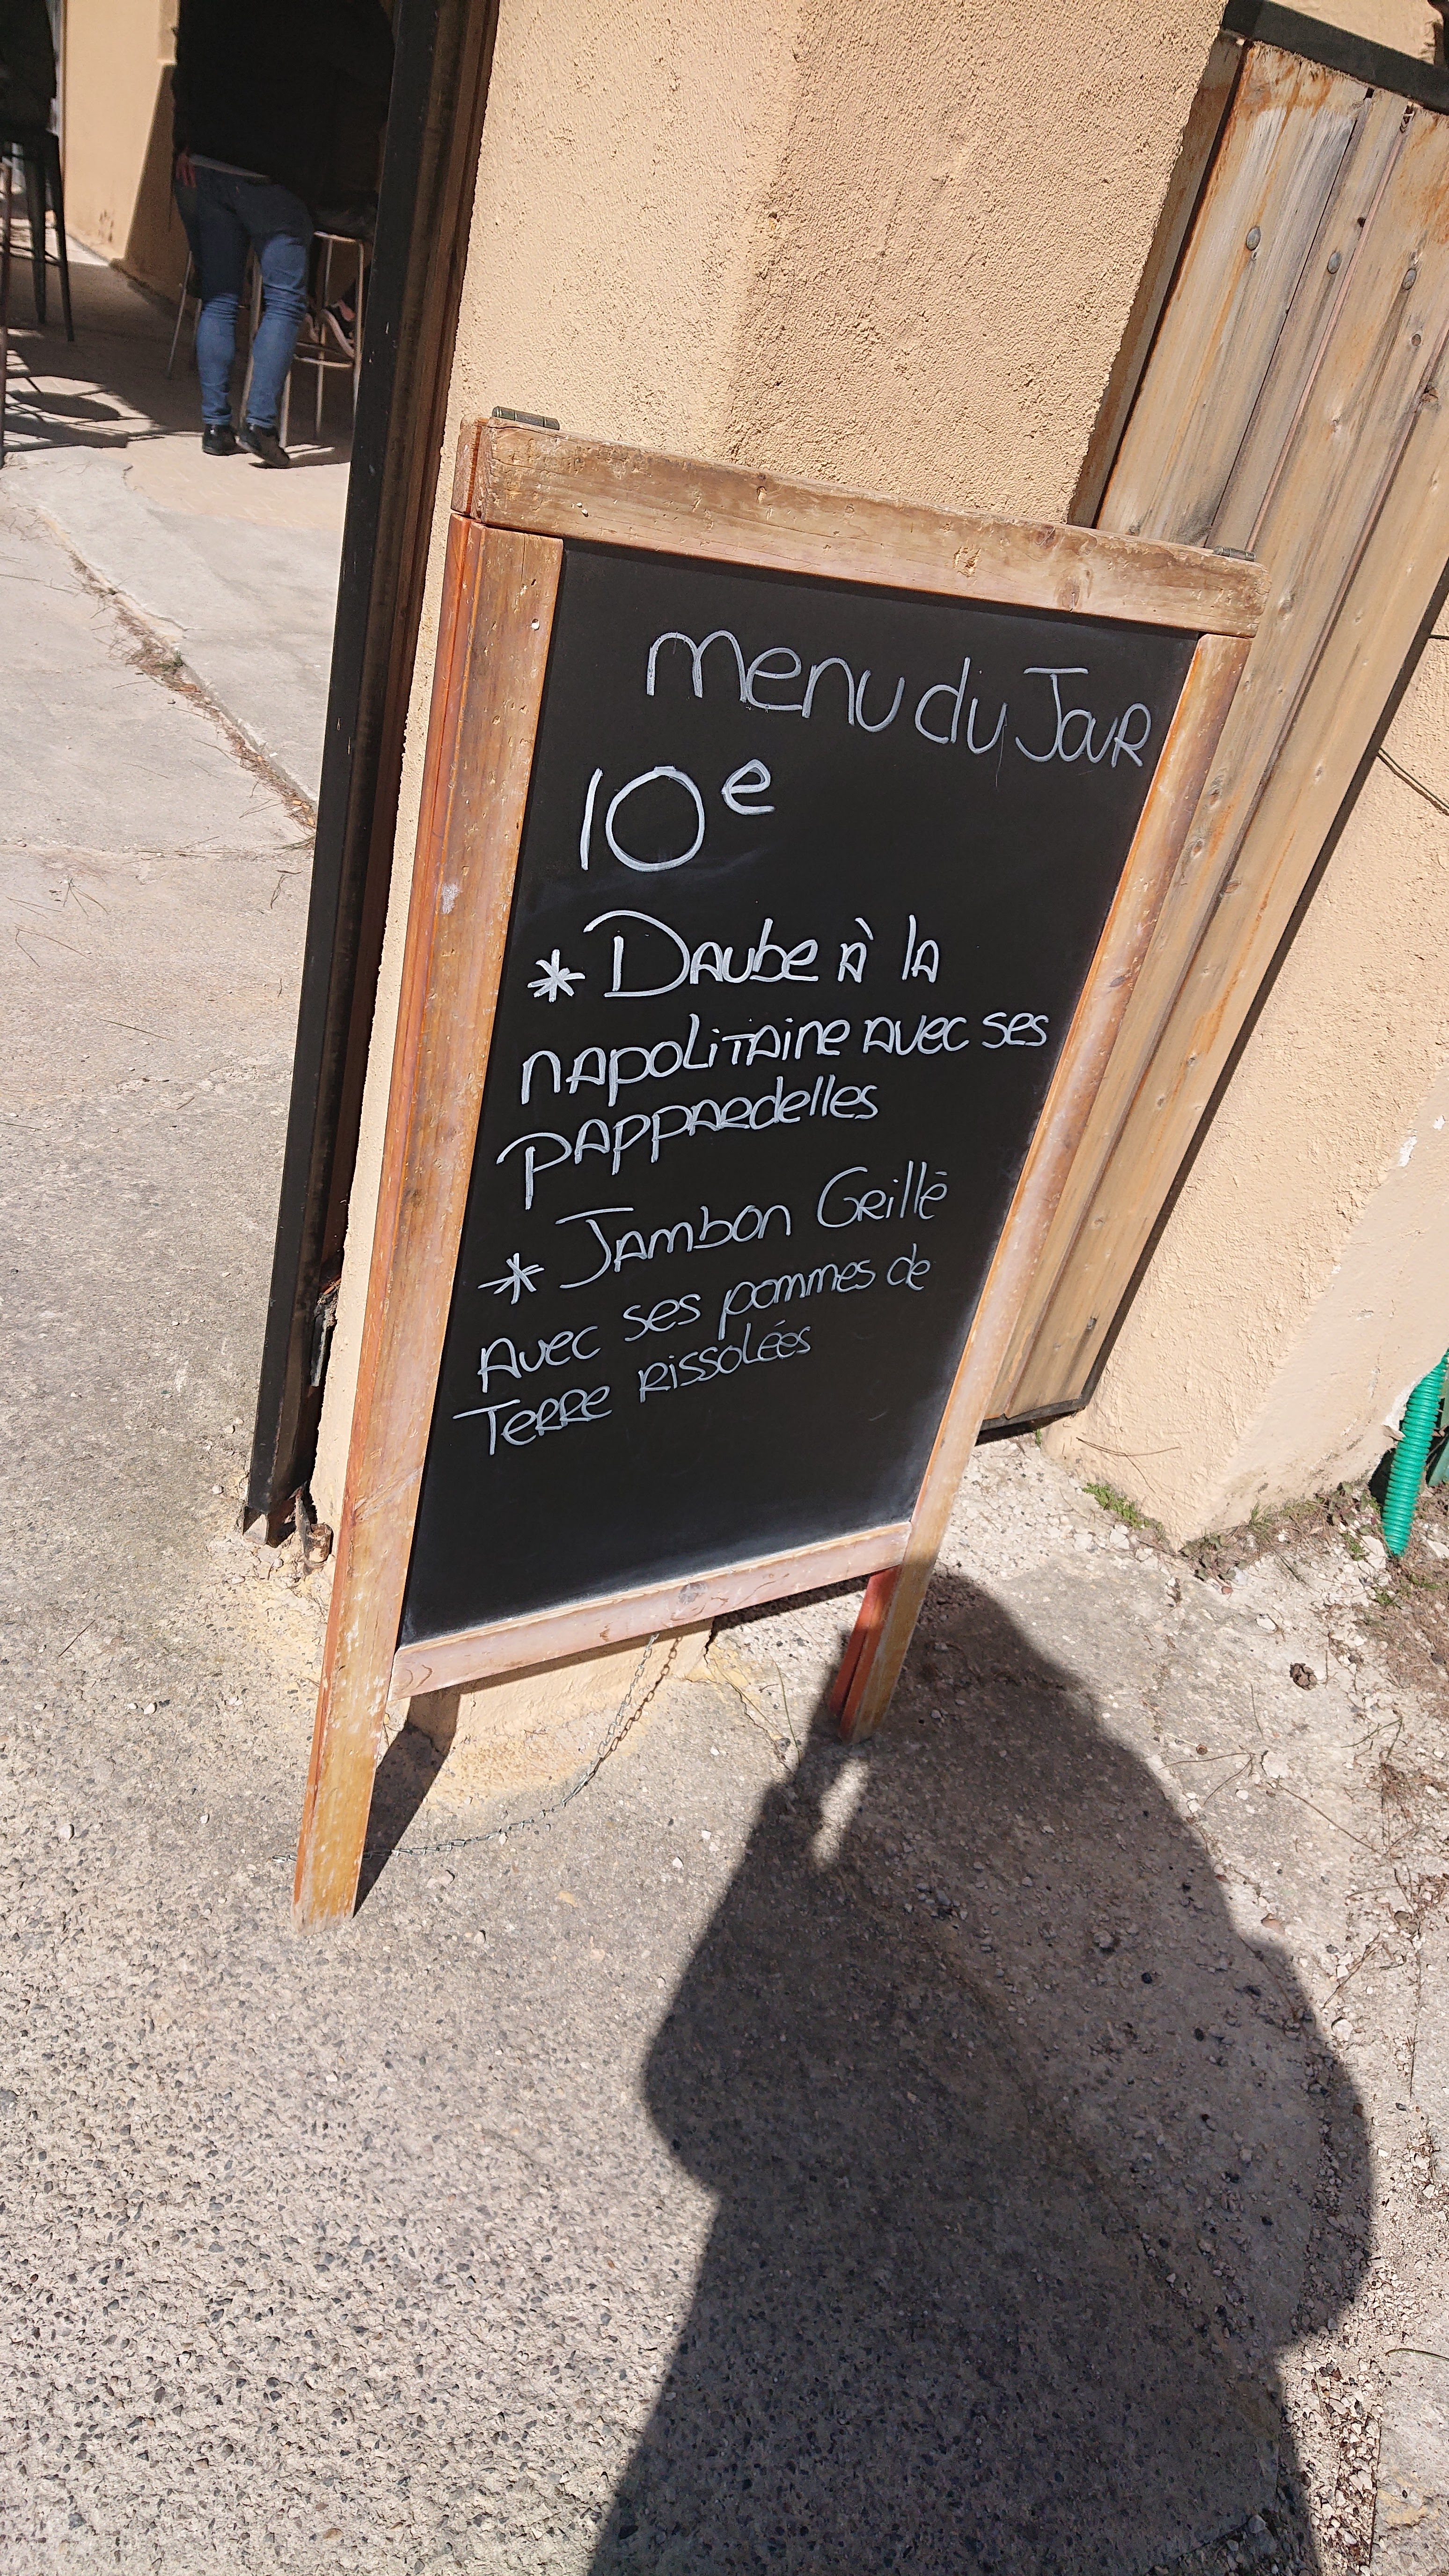 menu du Jour
10e
* Daube à la
napolitaine avec ses
pappardelles
* Jambon Grillé
Avec ses pommes de
Terre rissolées